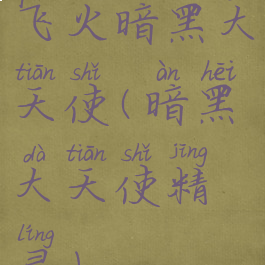 飞火暗黑大
tiān shǐ àn hēi
天使(暗黑
dà tiān shǐ jīng
大天使精
líng